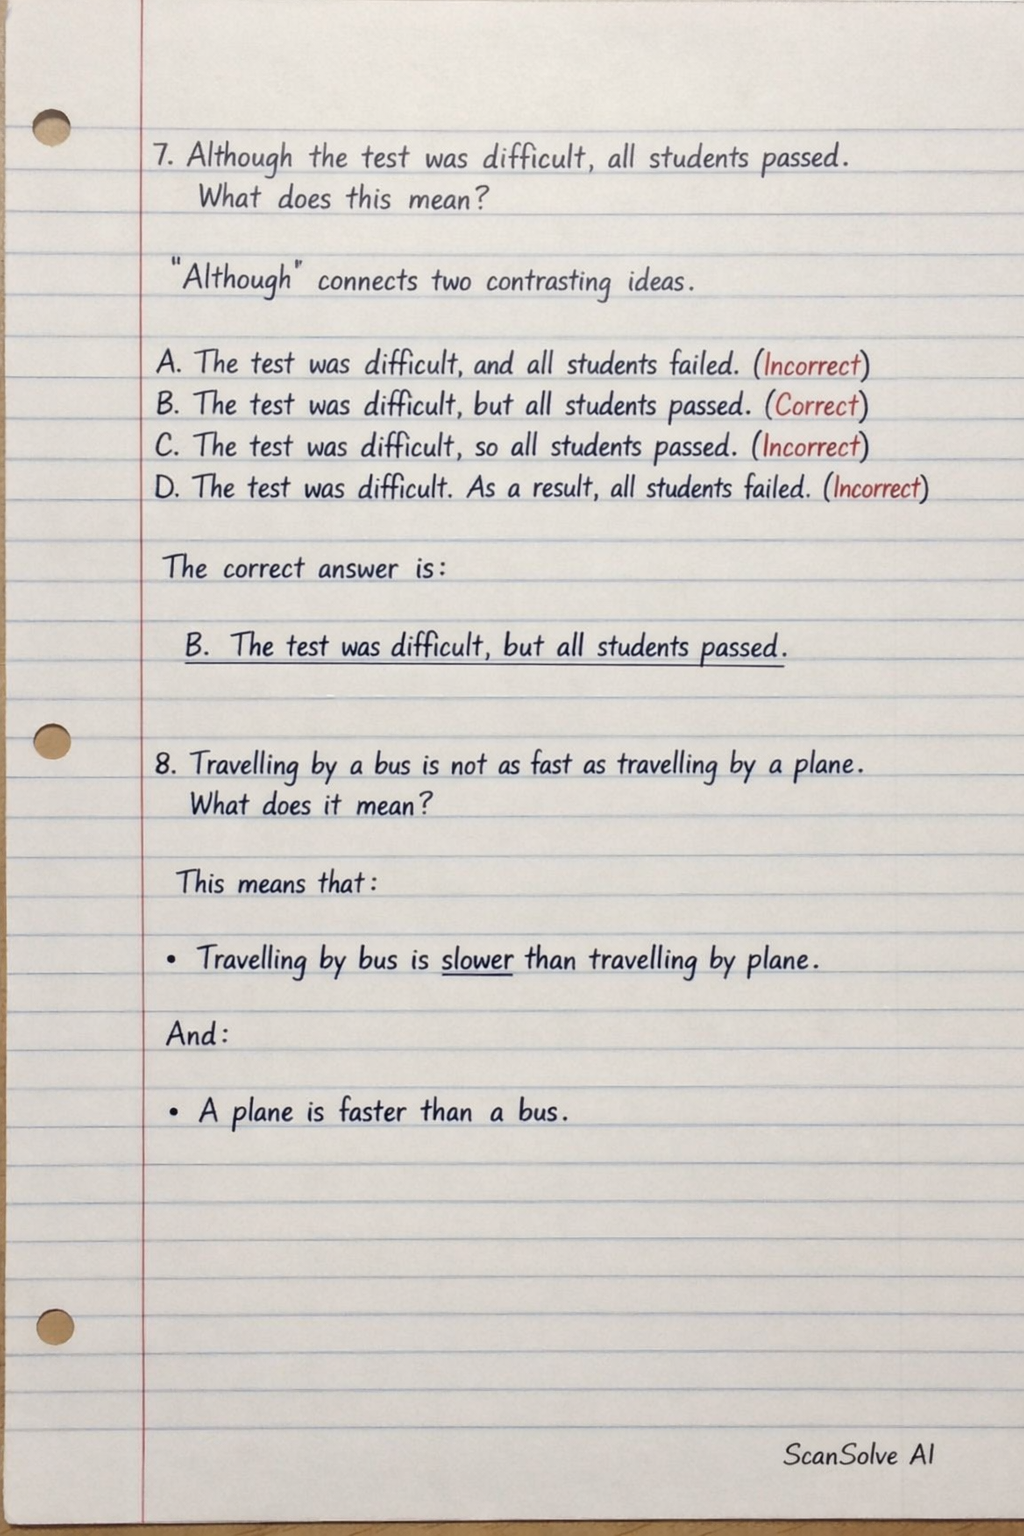 7. Although the test was difficult, all students passed.
What does this mean?
"Although" connects two contrasting ideas.
A. The test was difficult, and all students failed. (Incorrect)
B. The test was difficult, but all students passed. (Correct)
C. The test was difficult, so all students passed. (Incorrect)
D. The test was difficult. As a result, all students failed. (Incorrect)
The correct answer is:
B. The test was difficult, but all students passed.
8. Travelling by a bus is not as fast as travelling by a plane.
What does it mean?
This means that:
• Travelling by bus is slower than travelling by plane.
And:
• A plane is faster than a bus.
ScanSolve AI